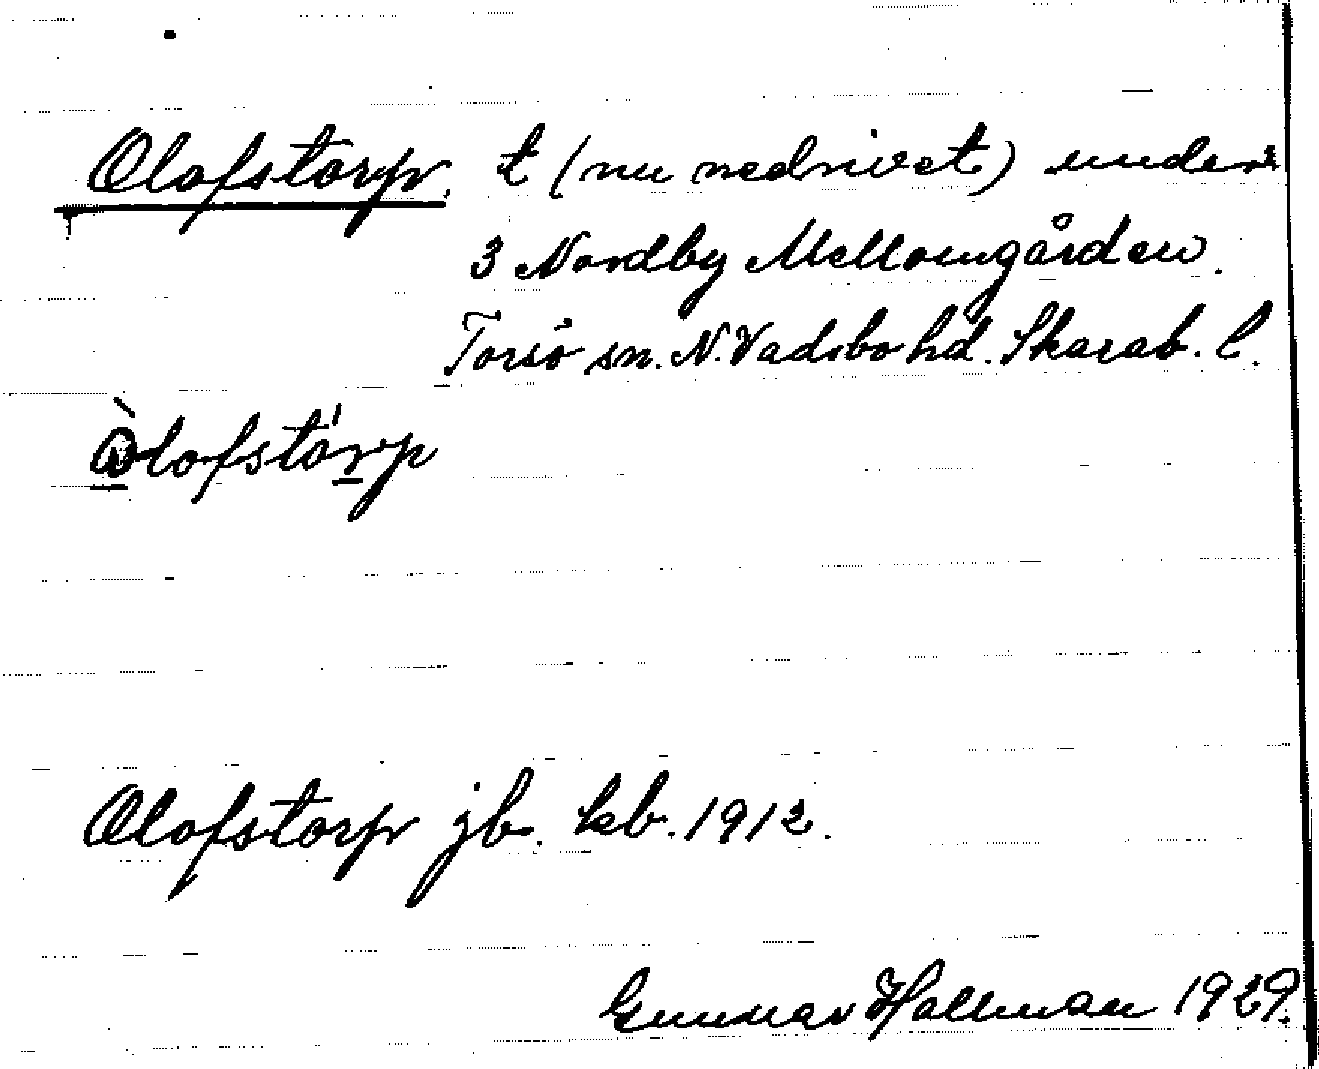 Olofstorp. t (nu nedrivet) under
3 Nordby Mellomgården.
Torsö sn. N. Vadsbo hd. Skarab. l.
Òlofstórp
Olofstorp jb. kb. 1912.
Gunnar Hallman 1929.